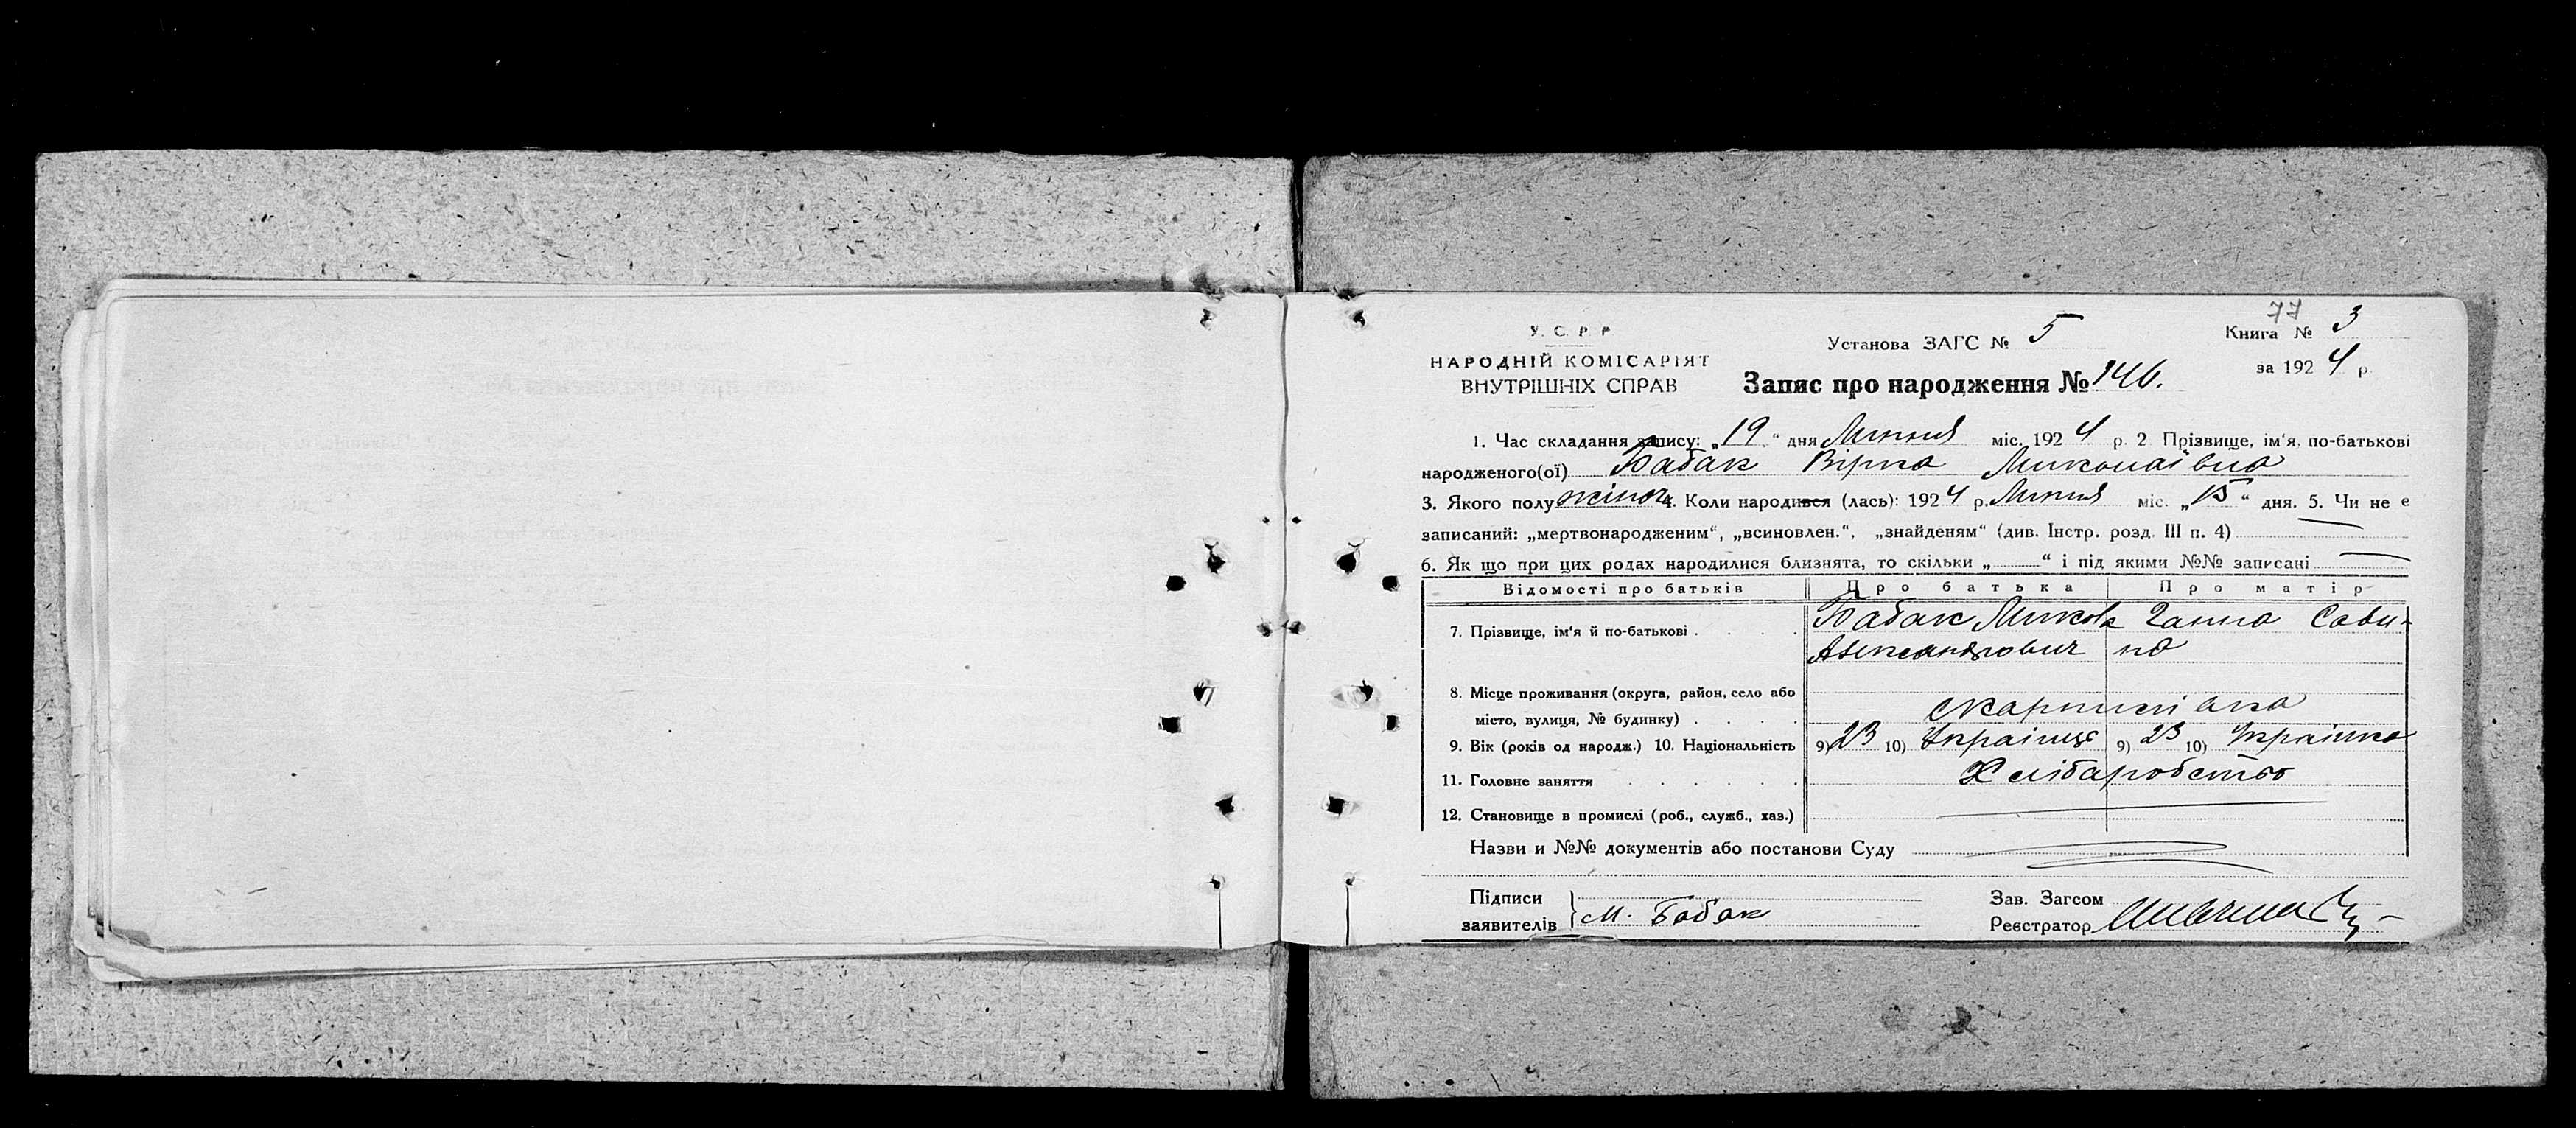 77
У. С. Р. Р.
НАРОДНІЙ КОМІСАРІЯТ
ВНУТРІШНІХ СПРАВ
Установа ЗАГС № 5
Книга № 3
за 1924 р.
Запис про народження № 146.
1. Час складання запису: „19“ дня Липня міс. 1924 р. 2 Прізвище, ім'я, по-батькові
народженого(ої) Бабак Вірка Миколаївна
3. Якого полу жіноч. 4. Коли народився (лась): 1924 р. Липня міс. „15“ дня. 5. Чи не є
записаний: „мертвонародженим“, „всиновлен.“, „знайденям“ (див. Інстр. розд. III п. 4)
6. Як що при цих родах народилися близнята, то скільки „ “ і під якими №№ записані
Відомості про батьків Про батька Про матір
7. Прізвище, ім'я й по-батькові . . . . Бабак Микола Ганна Сави-
Александрович на
8. Місце проживання (округа, район, село або
місто, вулиця, № будинку) . . . .
9. Вік (років од народж.) 10. Національність 9) 23 10) Українець 9) 23 10) Українка
11. Головне заняття . . . . . Хлібаробство
12. Становище в промислі (роб., служб., хаз.)
Назви и №№ документів або постанови Суду
Підписи
заявителів М. Бабак
Зав. Загсом
Реєстратор